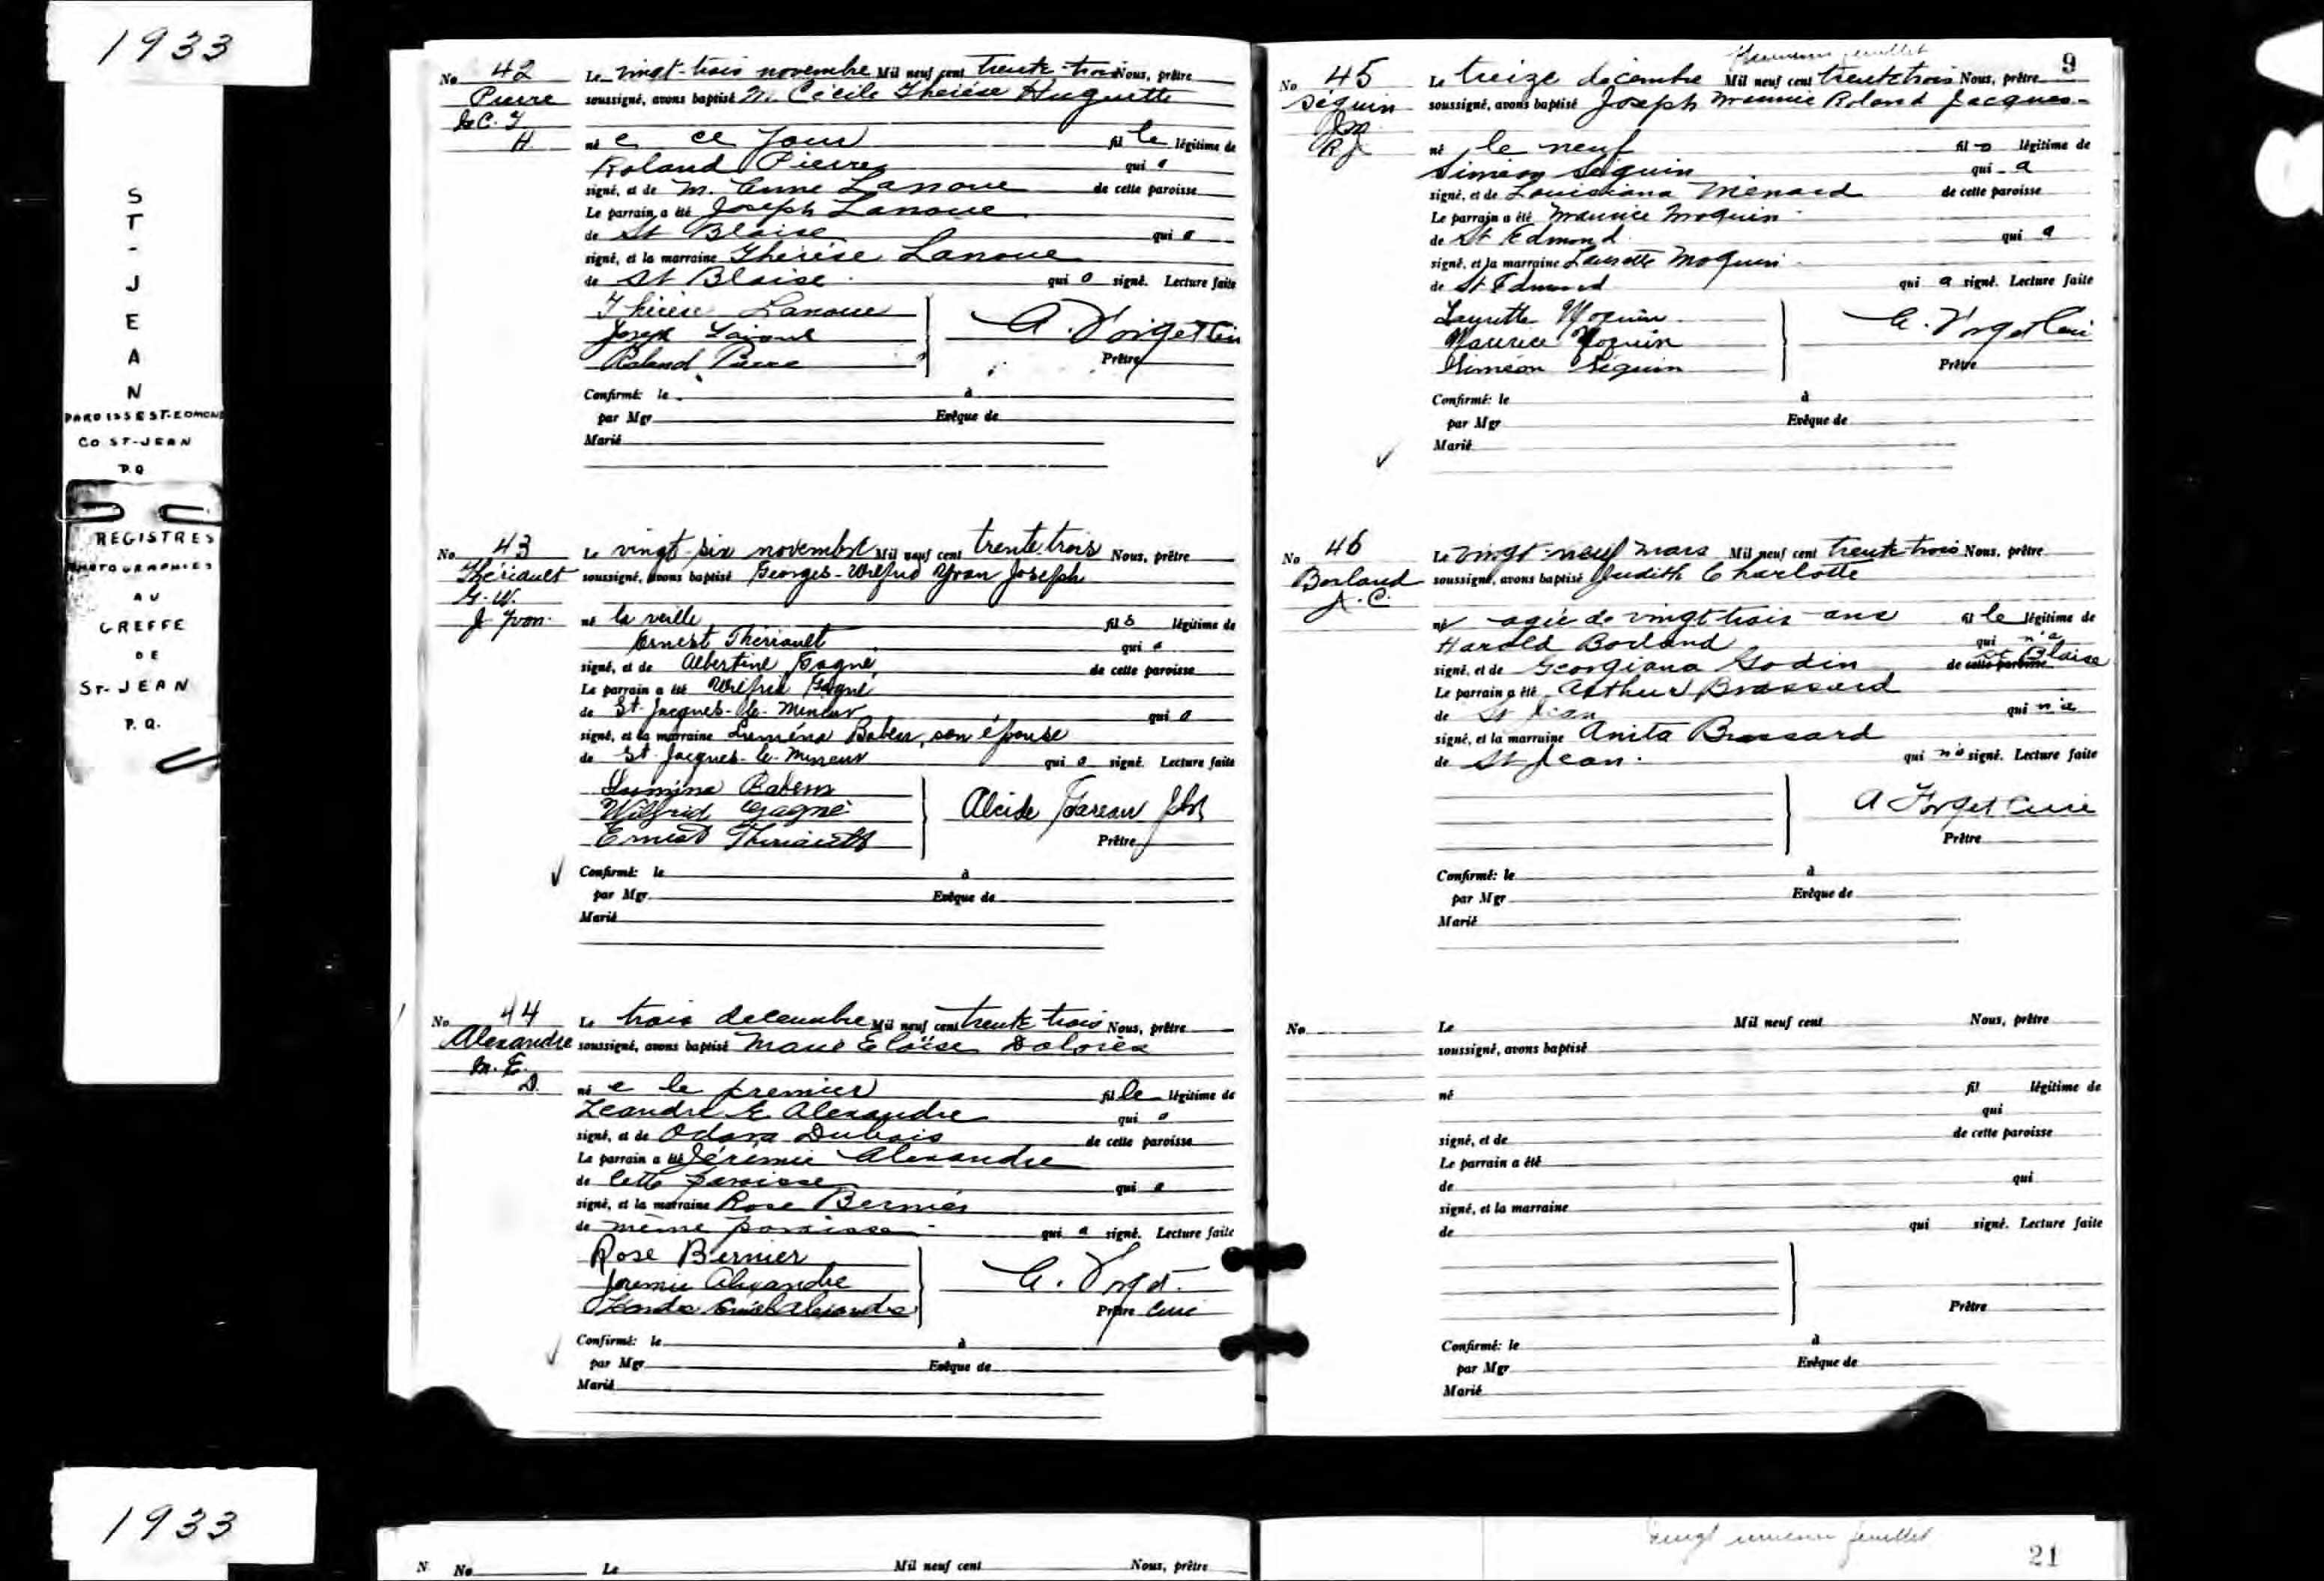 1933
S
T
-
J
E
A
N
PAROISSE ST-EDMOND
CO ST-JEAN
P.Q
REGISTRES
PHOTOGRAPHIES
AU
GREFFE
DE
ST-JEAN
P.Q.
1933
No 42 Le vingt-trois novembre Mil neuf cent trente-trois Nous, prêtre
Pierre soussigné, avons baptisé M. Cécile Thérèse Huguette
M. C. T.
H. né e ce jour fil le légitime de
Roland Pierre qui a
signé, et de M. Anne Lanoue de cette paroisse
Le parrain a été Joseph Lanoue
de St Blaise qui a
signé, et la marraine Thérèse Lanoue
de St Blaise. qui a signé. Lecture faite
Thérèse Lanoue
Joseph Lanoue A. Forget Curé
Roland Pierre Prêtre
Confirmé: le à
par Mgr Evêque de
Marié
No 43 Le vingt-six novembre Mil neuf cent trente trois Nous, prêtre
Thériault soussigné, avons baptisé Georges-Wilfrid Yvon Joseph
G. W.
J. Yvon. né la veille fil s légitime de
Ernest Thériault qui a
signé, et de Albertine Gagné de cette paroisse
Le parrain a été Wilfrid Gagné
de St-Jacques-le-Mineur qui a
signé, et la marraine Luména Babeu, son épouse
de St-Jacques-le-Mineur qui a signé. Lecture faite
Lumina Babeu
Wilfrid Gagné Alcide Fareau ptre
Ernest Thériault Prêtre
Confirmé: le à
par Mgr Evêque de
Marié
No 44 Le trois decembre Mil neuf cent trente trois Nous, prêtre
Alexandre soussigné, avons baptisé Marie Eloïse Dolorès
M. E.
D. né e le premier fil le légitime de
Léandre E Alexandre qui a
signé, et de Odora Dubois de cette paroisse
Le parrain a été Jérémie Alexandre
de cette paroisse qui a
signé, et la marraine Rose Bernier
de même paroisse. qui a signé. Lecture faite
Rose Bernier
Jérémie Alexandre A. Forget.
Léandre Emile Alexandre Prêtre Curé
Confirmé: le à
par Mgr Evêque de
Marié
feuillet 9
No 45 Le treize décembre Mil neuf cent trente trois Nous, prêtre
Séguin soussigné, avons baptisé Joseph Maurice Roland Jacques
J M
R J né le neuf fil s légitime de
Siméon Séguin qui a
signé, et de Louisiana Ménard de cette paroisse
Le parrain a été Maurice Moquin
de St Edmond qui a
signé, et la marraine Laurette Moquin
de St Edmond qui a signé. Lecture faite
Laurette Moquin
Maurice Moquin A. Forget Curé
Siméon Séguin Prêtre
Confirmé: le à
par Mgr Evêque de
Marié
No 46 Le vingt-neuf mars Mil neuf cent trente-trois Nous, prêtre
Borland soussigné, avons baptisé Judith Charlotte
J. C.
né agée de vingt trois ans fil le légitime de
Harold Borland qui n'a
signé, et de Georgiana Godin de cette paroisse St Blaise
Le parrain a été Arthur Brassard
de St Jean qui n'a
signé, et la marraine Anita Brassard
de St Jean. qui n'a signé. Lecture faite
A Forget Curé
Prêtre
Confirmé: le à
par Mgr Evêque de
Marié
No Le Mil neuf cent Nous, prêtre
soussigné, avons baptisé
né fil légitime de
qui
signé, et de de cette paroisse
Le parrain a été
de qui
signé, et la marraine
de qui signé. Lecture faite
Prêtre
Confirmé: le à
par Mgr Evêque de
Marié
N No Le Mil neuf cent Nous, prêtre
vingt unieme feuillet
21